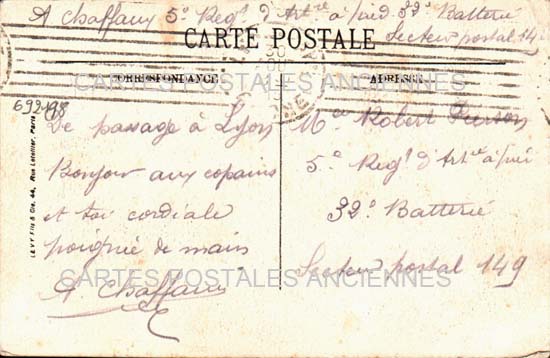 A Chaffaux 5e Regt d'Artie à pied 32e Batterie
Secteur postal 149
CARTE POSTALE
CORRESPONDANCE
ADRESSE
CARTES POSTALES ANCIENNES
699498
De passage à Lyon
Bonjour aux copains
et toi cordiale
poignée de main
A Chaffaux
Mr Robert
5e Regt d'Artie à pied
32e Batterie
Secteur postal 149
CARTES POSTALES ANCIENNES
LEVY Fils & Cie. 44, Rue Letellier, Paris